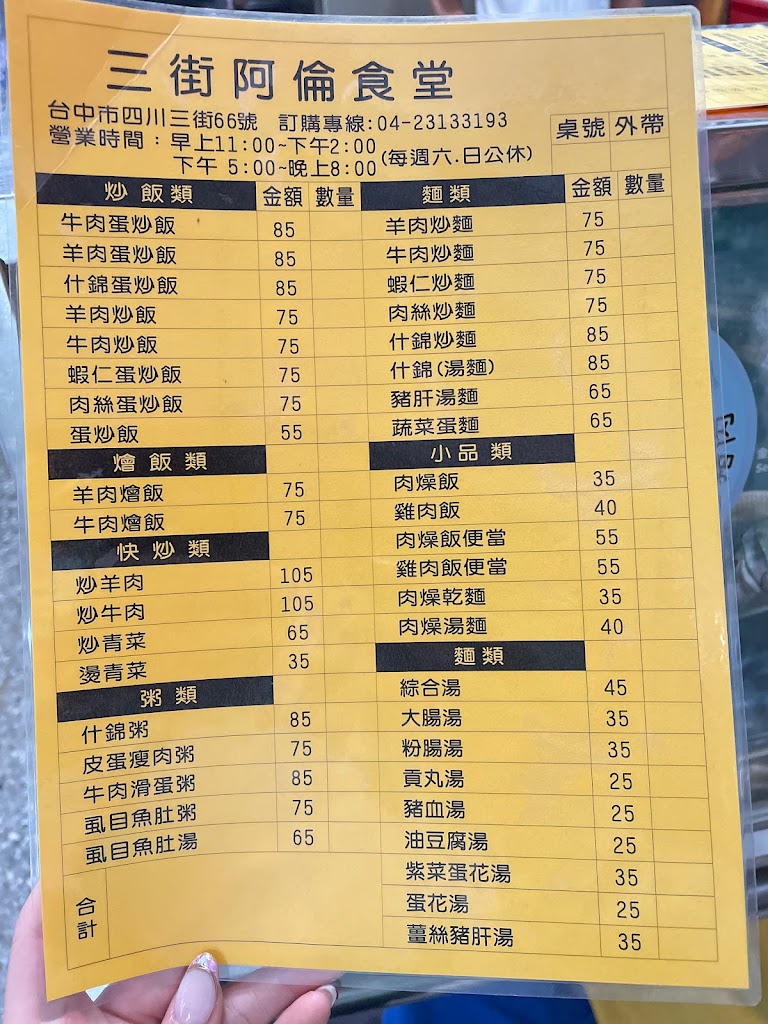 三街阿倫食堂
台中市四川三街66號 訂購專線:04-23133193
營業時間：早上11:00~下午2:00
下午 5:00~晚上8:00 (每週六.日公休)
桌號 外帶
炒飯類 金額 數量
牛肉蛋炒飯 85
羊肉蛋炒飯 85
什錦蛋炒飯 85
羊肉炒飯 75
牛肉炒飯 75
蝦仁蛋炒飯 75
肉絲蛋炒飯 75
蛋炒飯 55
燴飯類
羊肉燴飯 75
牛肉燴飯 75
快炒類
炒羊肉 105
炒牛肉 105
炒青菜 65
燙青菜 35
粥類
什錦粥 85
皮蛋瘦肉粥 75
牛肉滑蛋粥 85
虱目魚肚粥 75
虱目魚肚湯 65
合計
麵類 金額 數量
羊肉炒麵 75
牛肉炒麵 75
蝦仁炒麵 75
肉絲炒麵 75
什錦炒麵 85
什錦(湯麵) 85
豬肝湯麵 65
蔬菜蛋麵 65
小品類
肉燥飯 35
雞肉飯 40
肉燥飯便當 55
雞肉飯便當 55
肉燥乾麵 35
肉燥湯麵 40
麵類
綜合湯 45
大腸湯 35
粉腸湯 35
貢丸湯 25
豬血湯 25
油豆腐湯 25
紫菜蛋花湯 35
蛋花湯 25
薑絲豬肝湯 35